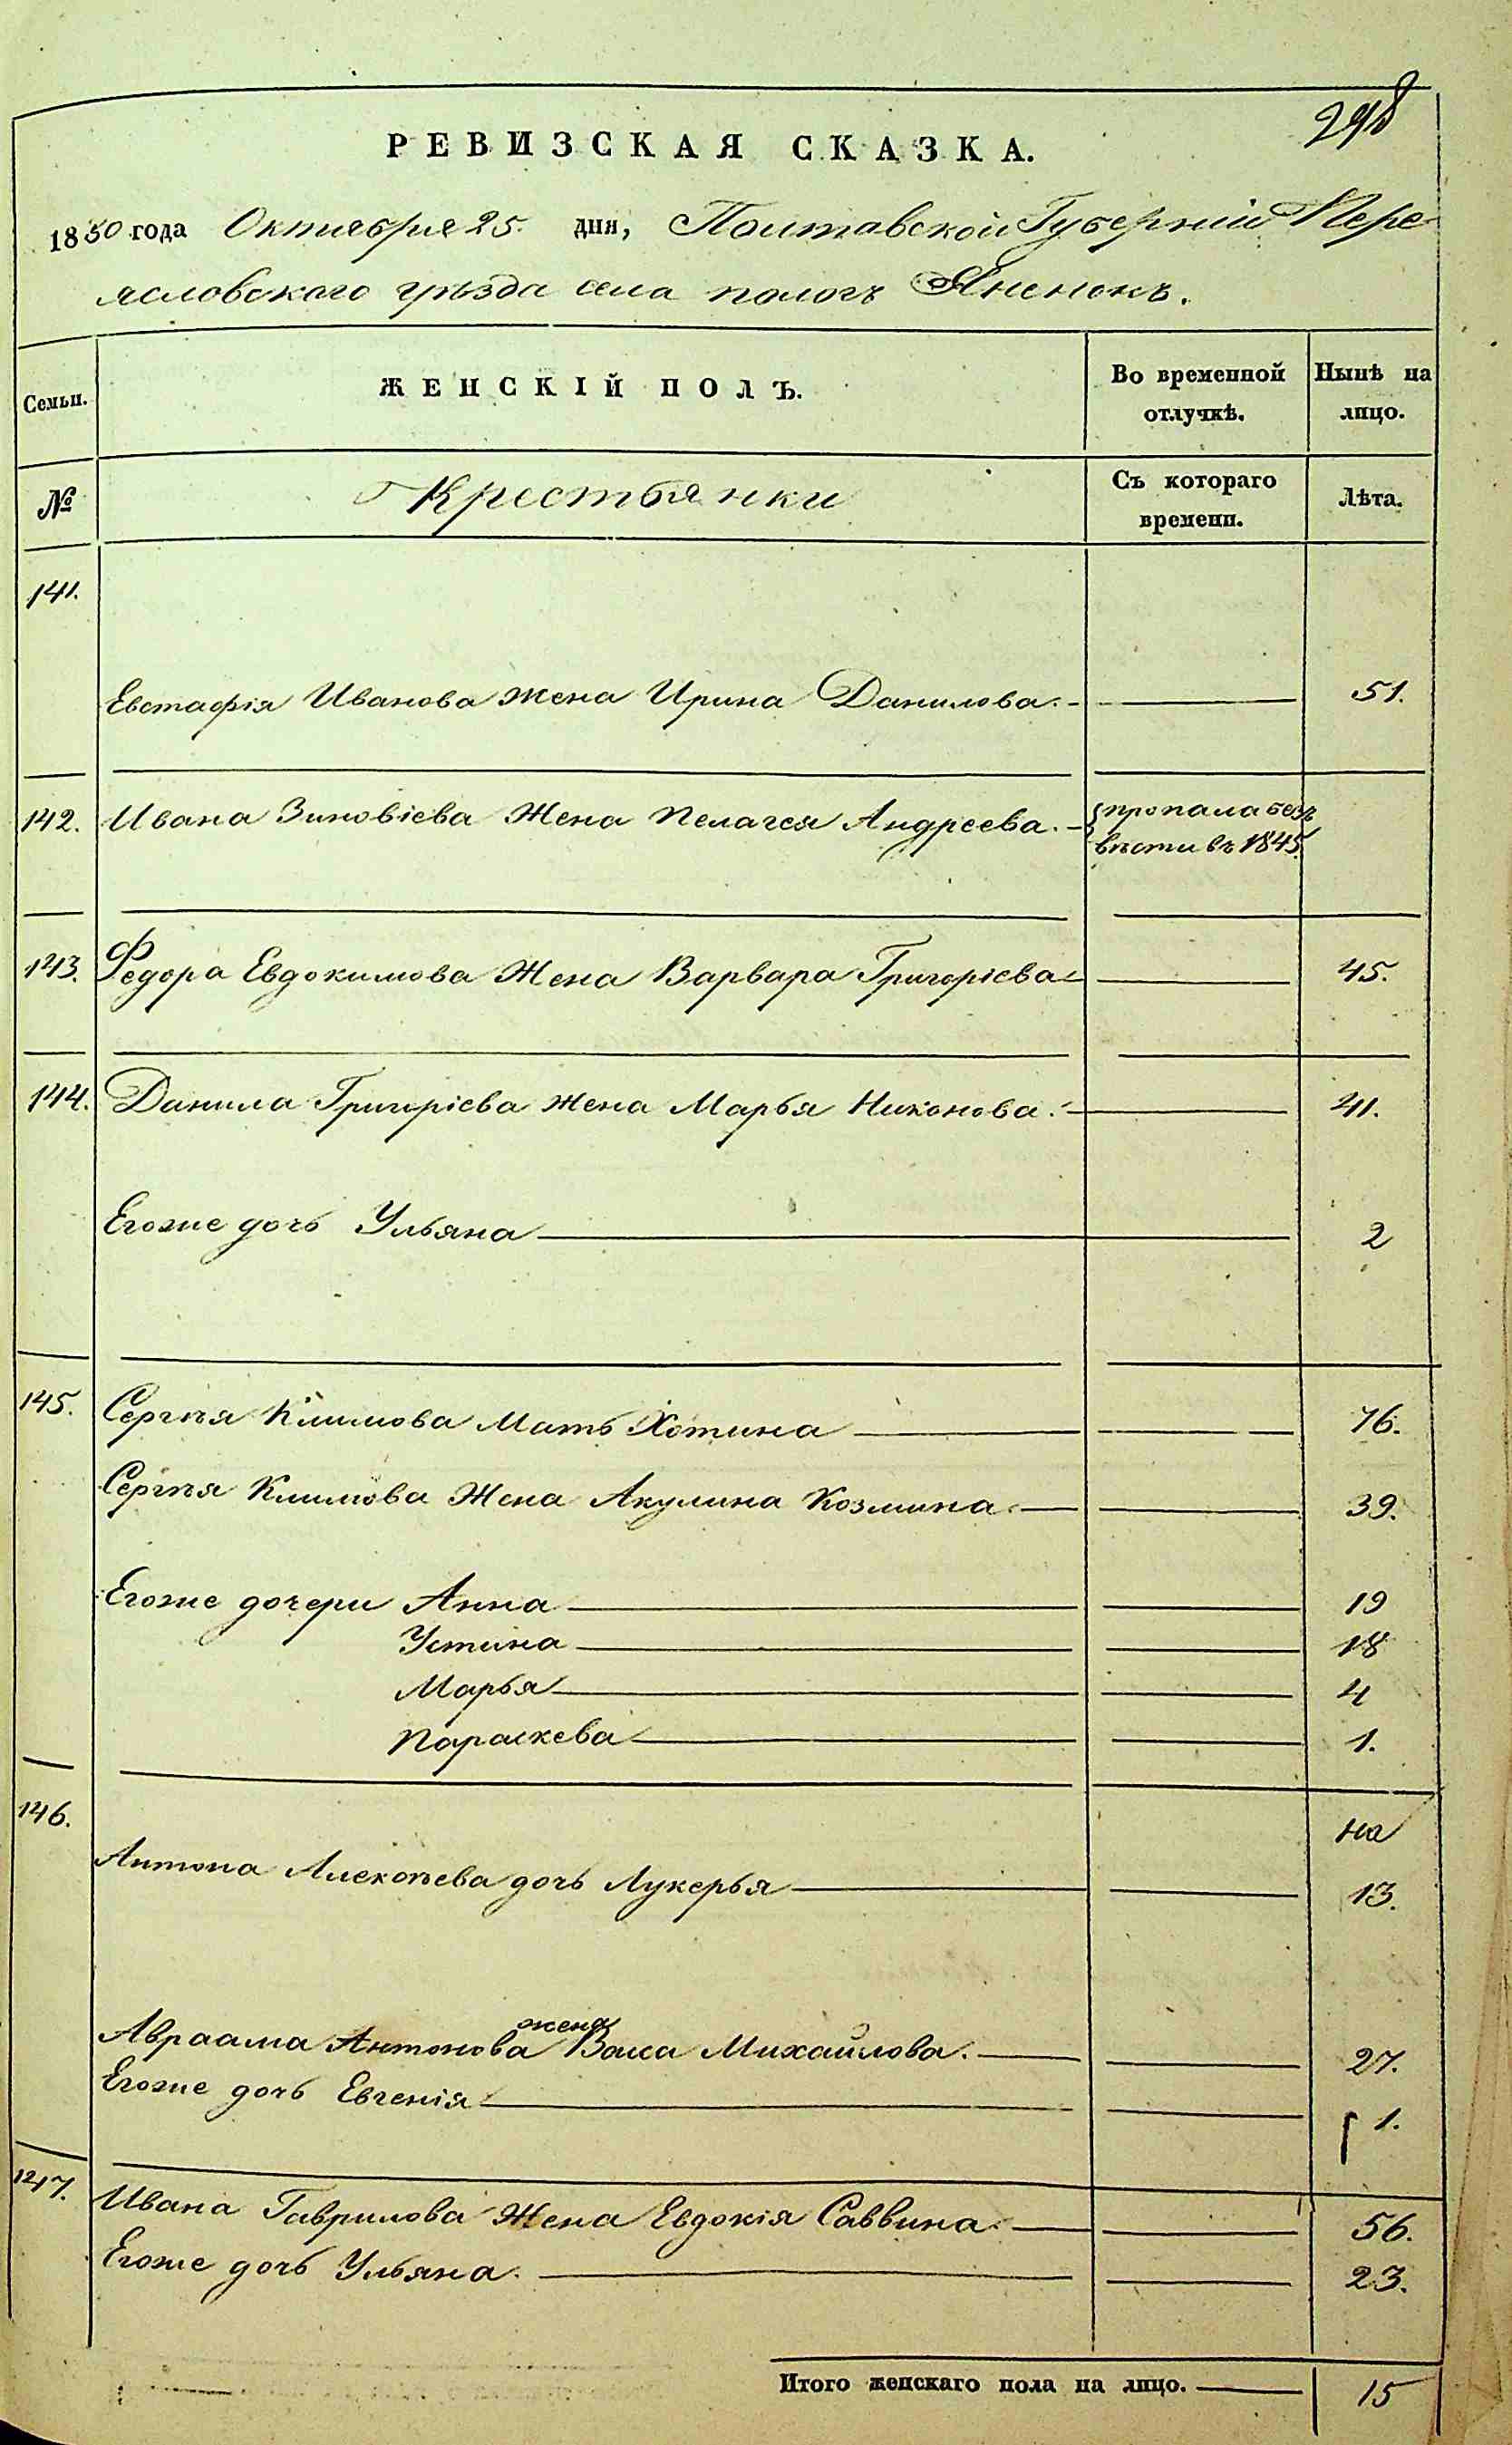 298
РЕВИЗСКАЯ СКАЗКА.
1850 года Октября 25. дня, Полтавской Губерніи Пере-
яславского уѣзда села пологъ Яненокъ.
Семьи. ЖЕНСКІЙ ПОЛЪ. Во временной отлучкѣ. Нынѣ на лицо.
№ Крестьянки Съ котораго времени. Лѣта.
141.
Евстафія Иванова жена Ирина Данилова. 51.
142. Ивана Зиновіева Жена Пелагея Андреева. пропала безъ
вѣсти въ 1845.
143. Федора Евдокимова Жена Варвара Григоріева 45.
144. Данила Григоріева жена Марья Никонова. 41.
Егоже дочь Ульяна 2
145. Сергѣя Климова Мать Хотина 76.
Сергѣя Климова Жена Акулина Козмина. 39.
Егоже дочери Анна 19
Устина 18
Марья 4
Параскева 1.
146. на
Антона Алексѣева дочь Лукерья 13.
жена
Авраама Антонова Васса Михайлова. 27.
Егоже дочь Евгенія 1.
147. Ивана Гаврилова Жена Евдокія Саввина. 56.
Егоже дочь Ульяна. 23.
Итого женскаго пола на лицо. 15